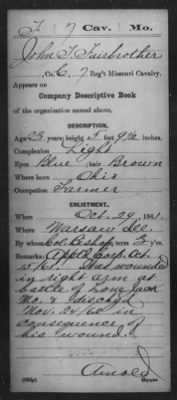 F. 7 Cav. Mo.
John T. Fairbrother
, Co. C, 7 Reg't Missouri Cavalry.
Appears on
Company Descriptive Book
of the organization named above.
DESCRIPTION.
Age 23 years; height 5 feet 9½ inches.
Complexion Light
Eyes Blue; hair Brown
Where born Ohio
Occupation Farmer
ENLISTMENT.
When Oct. 29, 1861.
Where Warsaw
By whom Col. Bishop; term 3 y'rs.
Remarks: Appt'd Corp. Oct.
Was wounded
in right arm at
battle of Lone Jack
Mo. & disch'gd
Nov. 24/62 in
consequence of
his wound.
Arnold
Copyist.